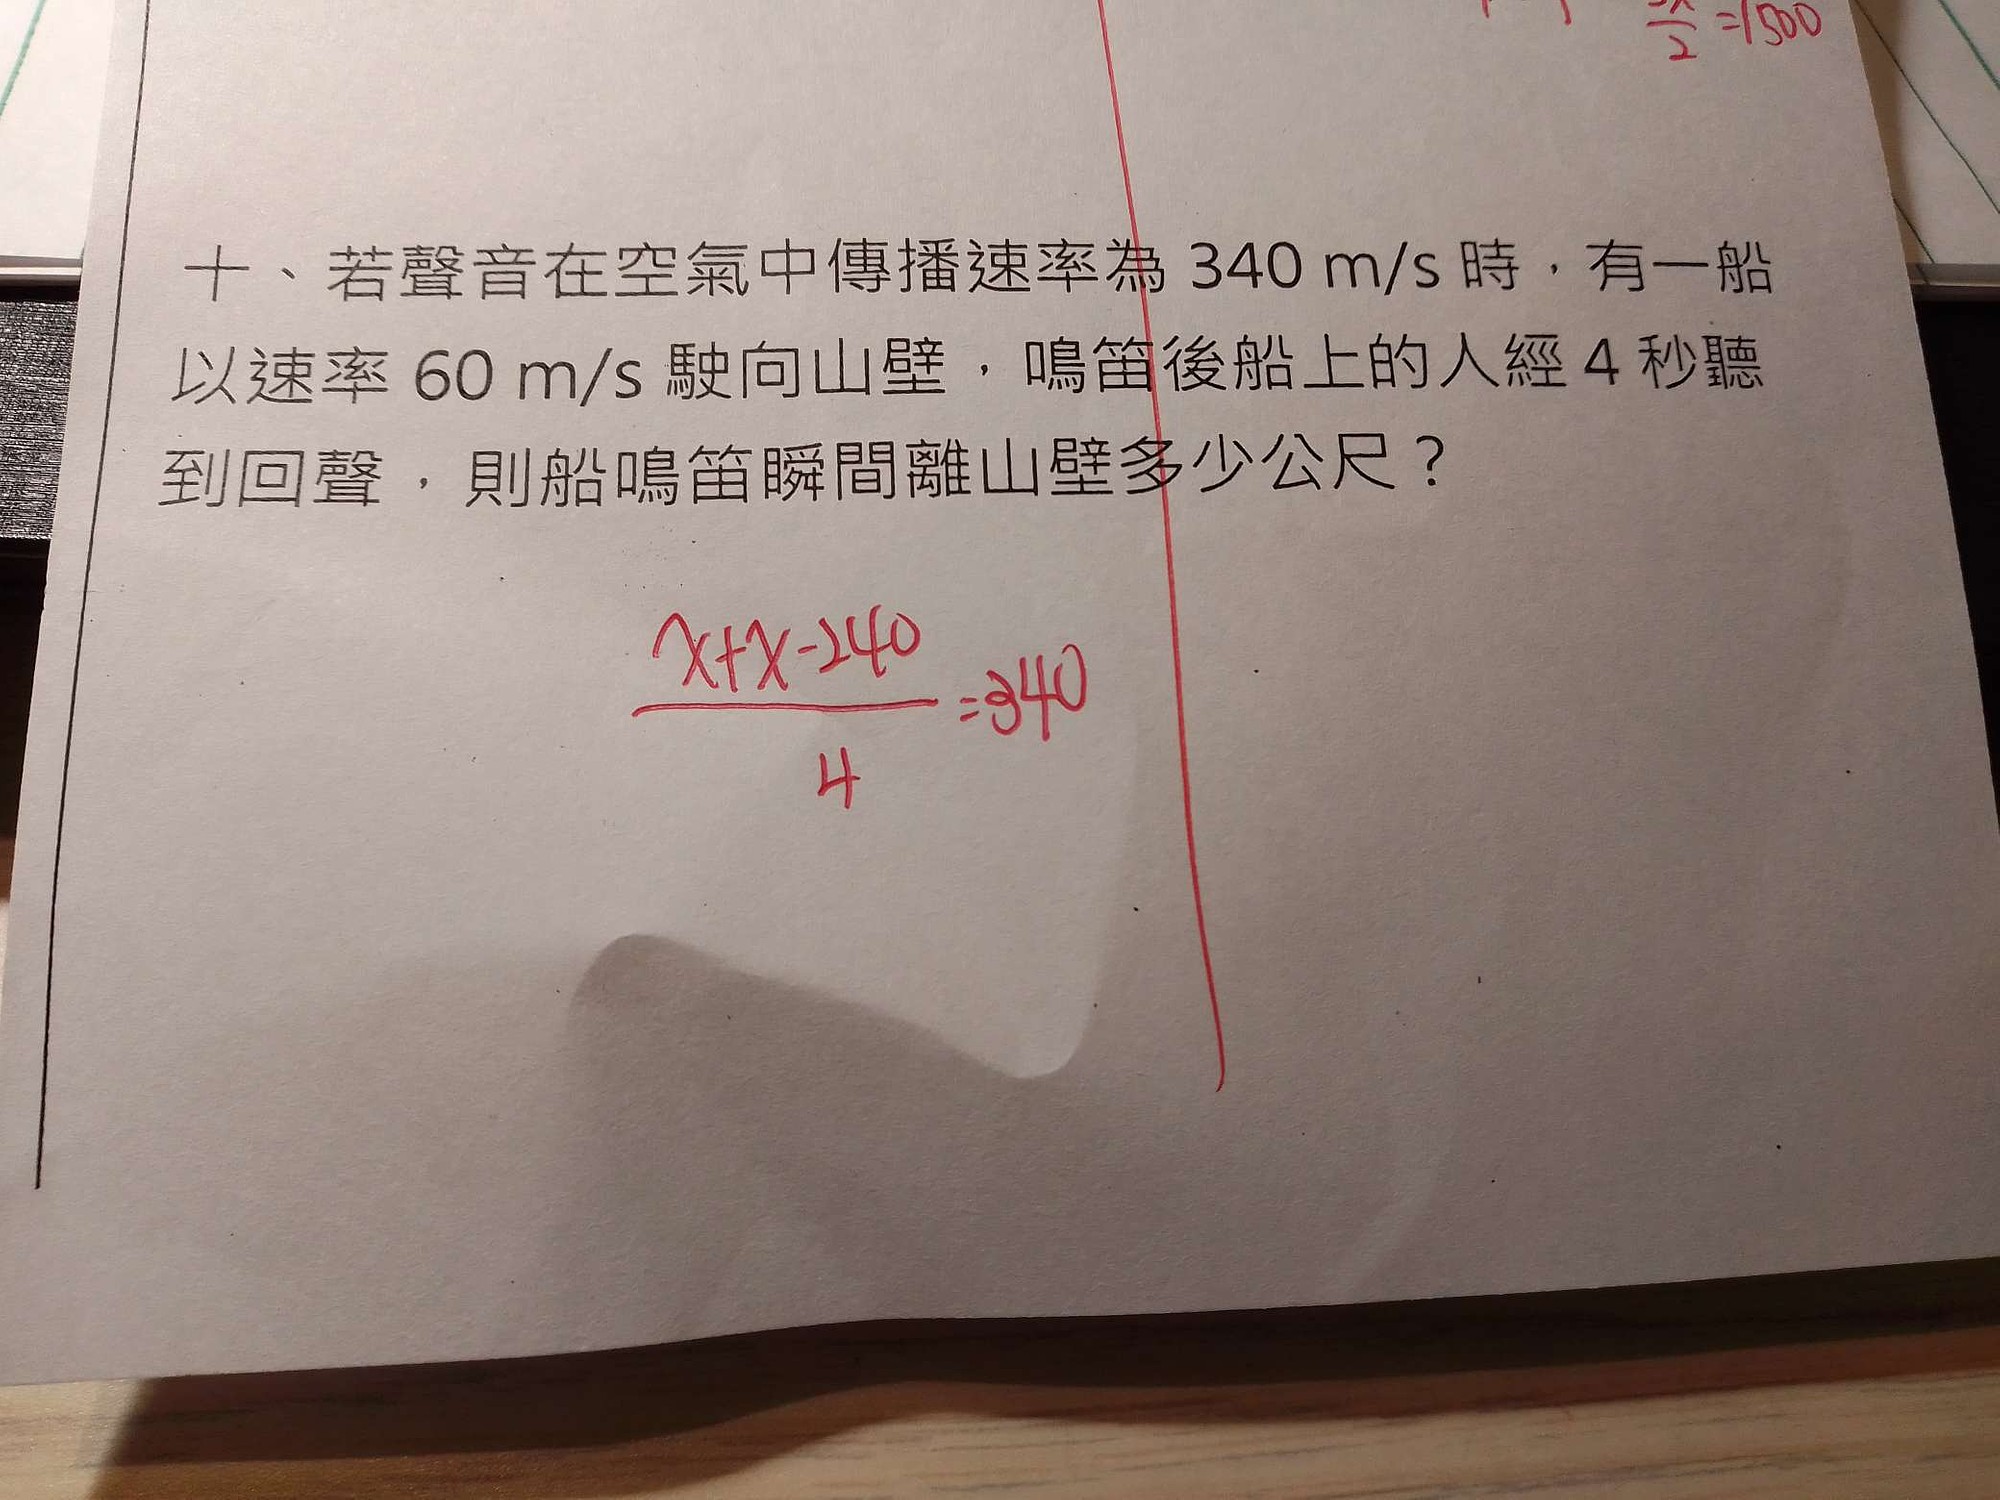 =1500
2
十、若聲音在空氣中傳播速率為 340 m/s 時，有一船
以速率 60 m/s 駛向山壁，鳴笛後船上的人經 4 秒聽
到回聲，則船鳴笛瞬間離山壁多少公尺？
x+x-240
=340
4